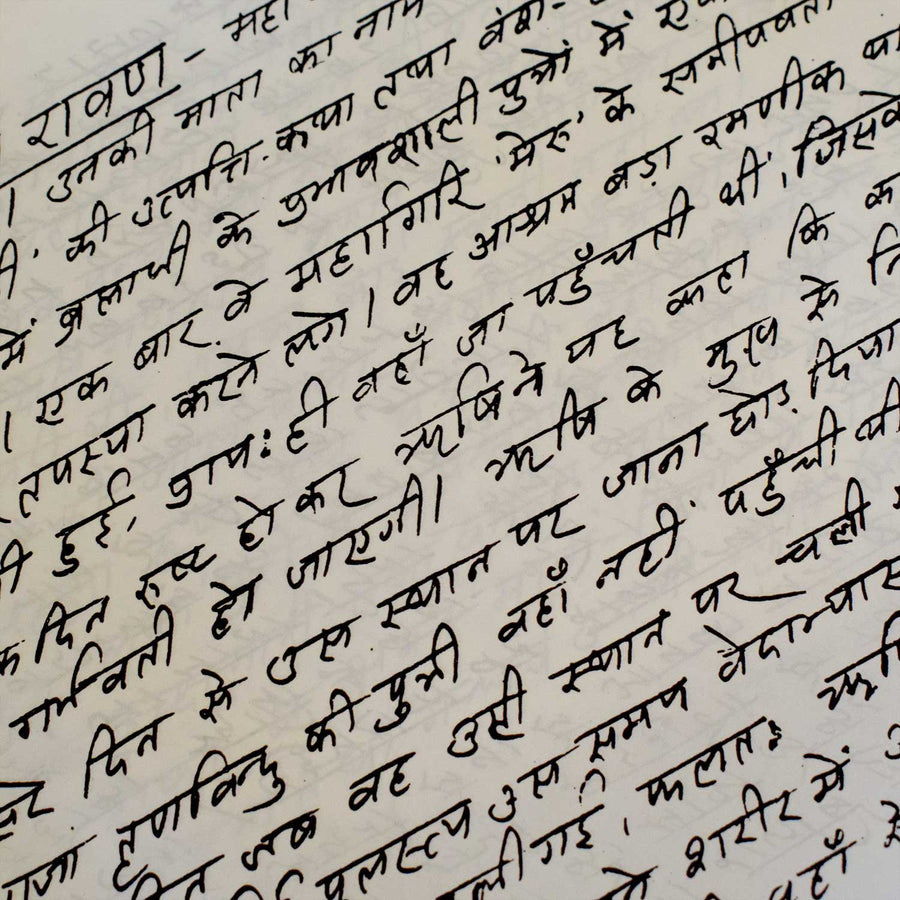 रावण - महा
। उनकी माता का नाम
की उत्पत्ति-कथा तथा वंश-
में ब्रह्माजी के प्रभावशाली पुत्रों में
। एक बार वे महागिरि 'मेरु' के समीपवर्ती
तपस्या करने लगे। वह आश्रम बड़ा रमणीक था
हुई, प्रायः ही वहाँ जा पहुँचती थीं, जिसके
दिन रुष्ट होकर ऋषि ने यह कहा कि
गर्भवती हो जाएगी। ऋषि के मुख से
दिन से उस स्थान पर जाना छोड़ दिया
राजा तृणविन्दु की पुत्री वहाँ नहीं पहुँची थी
जब वह उसी स्थान पर चली
पुलस्त्य उस समय वेदाभ्यास
गई, फलतः ऋषि
शरीर में
वहाँ से